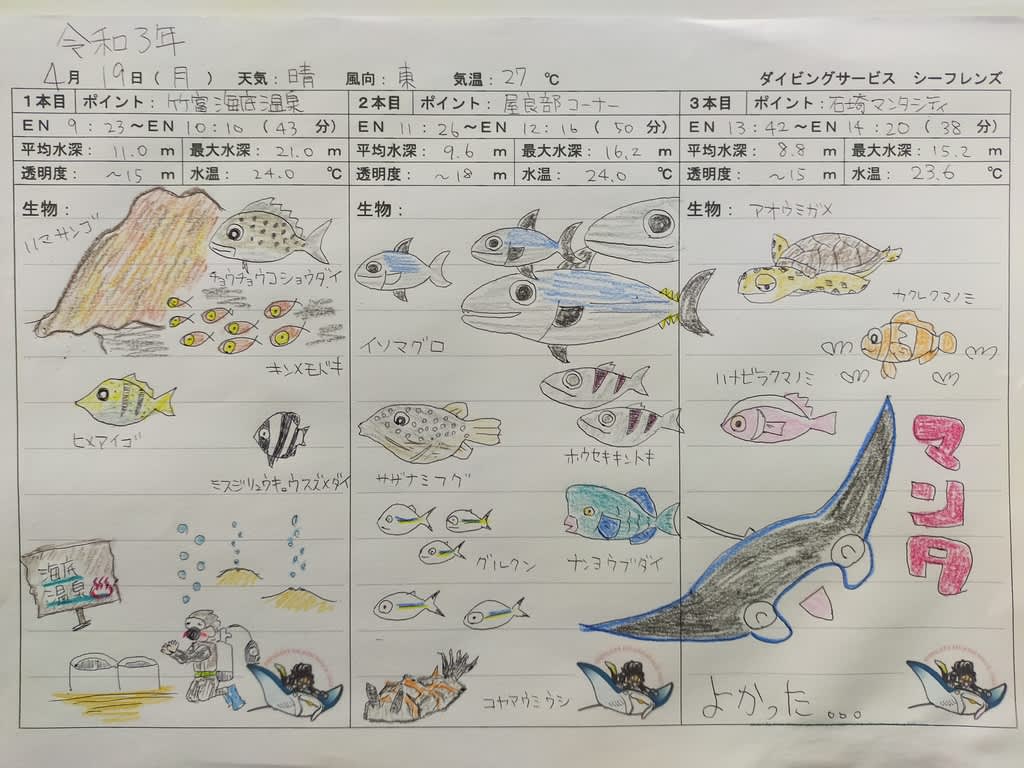 令和3年
4月 19日(月) 天気:晴 風向:東 気温:27 ℃ ダイビングサービス シーフレンズ
1本目 ポイント:竹富海底温泉
EN 9:23~EN 10:10 (43 分)
平均水深: 11.0 m 最大水深: 21.0 m
透明度: ~15 m 水温: 24.0 ℃
生物:
ハマサンゴ
チョウチョウコショウダイ
キンメモドキ
ヒメアイゴ
ミスジリュウキュウスズメダイ
海底
温泉
2本目 ポイント:屋良部コーナー
EN 11:26~EN 12:16 (50 分)
平均水深: 9.6 m 最大水深: 16.2 m
透明度: ~18 m 水温: 24.0 ℃
生物:
イソマグロ
ホウセキキントキ
サザナミフグ
グルクン
ナンヨウブダイ
コヤマウミウシ
3本目 ポイント:石埼マンタシティ
EN 13:42~EN 14:20 (38 分)
平均水深: 8.8 m 最大水深: 15.2 m
透明度: ~15 m 水温: 23.6 ℃
生物: アオウミガメ
カクレクマノミ
ハナビラクマノミ
マンタ
よかった。。。